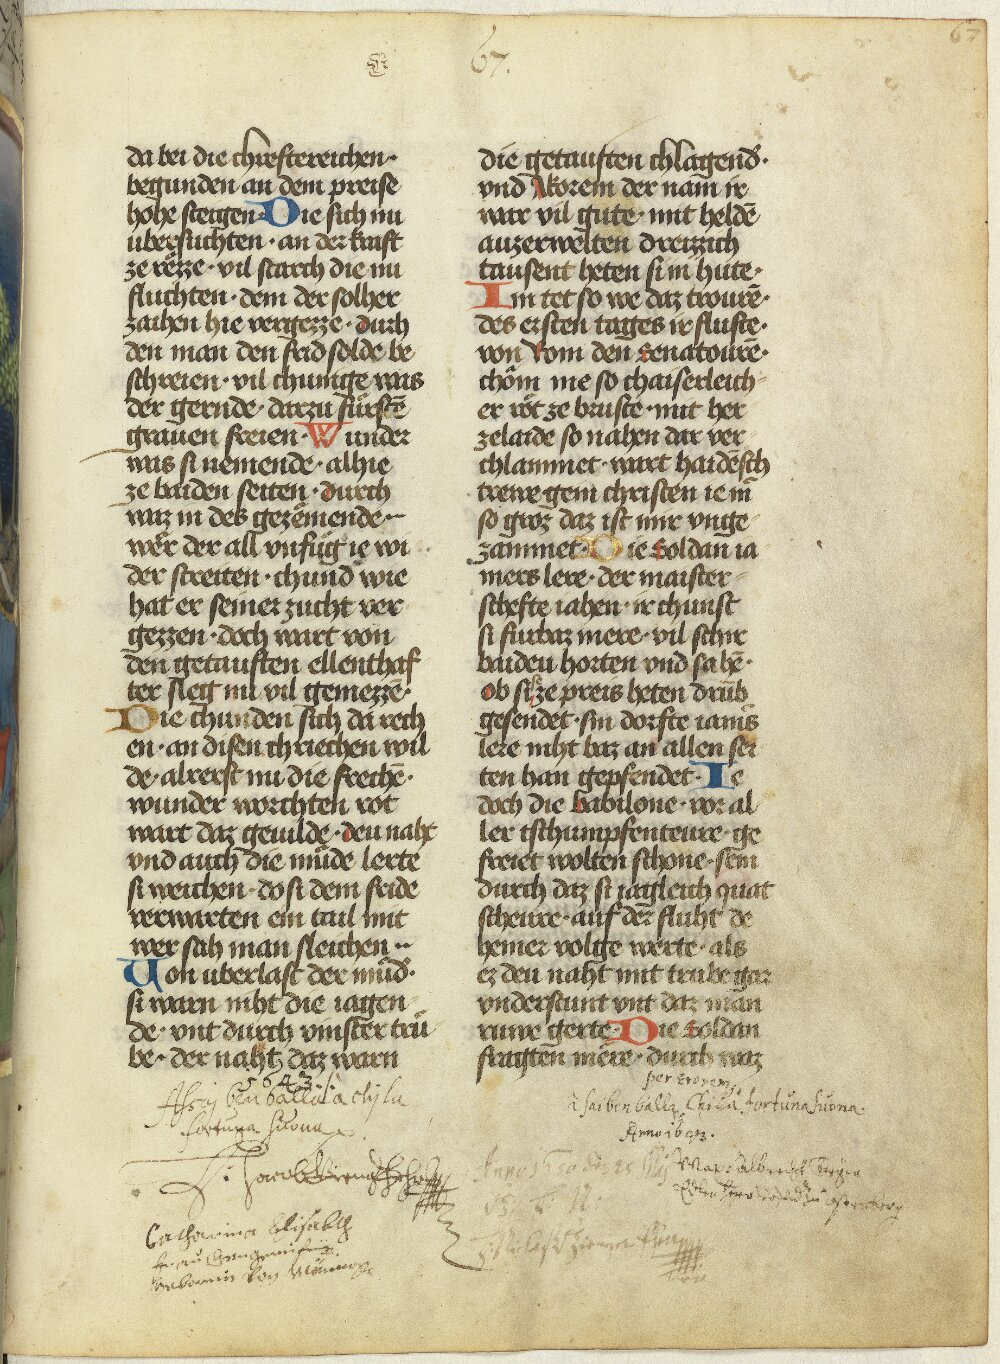 67.
67
da bei die chrestereichen·
begunden an dem preise
hohe steigen· Die sich nu
ubersuchten· an der kraft
ze rëzze· vil starch die nu
fluchten· dem der solher
zaihen hie vergezze· durh
den man den frid solde be
schreien· vil chunige was
der gernde· darzu fürstē
grauen freien· Wunder
was si nemende· alhie
ze baiden seiten· durch
waz in des gezëmende··
wër der all vnfüg ie wi
der streiten· chund wie
hat er seiner zucht ver
gezzen· doch wart von
den getauften ellenthaf
ter sleg nu vil gemezzē·
Die chunden sich da rech
en· an disen chriechen wil
de· alrerst nu die frechē·
wunder worchten rot
wart daz gevilde· deu naht
vnd auch die müde lerte
si weichen· do si dem fride
verwarten ein tail mit
wer sah man sleichen··
Von uberlast der müd·
si warn niht die iagen
de· vnt durch vinster trü
be· der naht daz warn
die getauften chlagend·
vnd Akorein der nam ir
war vil gute· mit heldē
auzerwelten dreizzich
tausent heten si in hute·
Im tet so we daz trourē·
des ersten tages ir fluste·
von Rom den senatourē·
chôm nie so chaiserleich
er rôt ze bruste· mit her
zelaide so nahen dar ver
chlammet· wart haidēsch
trewe gein christen ie in
so groz daz ist mir vnge
zammet· Die soldan ia
mers lere· der maister
schefte iahen· ir chunst
si furbaz mere· vil schir
baideu horten vnd sahē·
ob si ze preis heten drüb
gesendet· sin dorfte iamˢ
lere niht baz an allen sei
ten han gepfendet· Ie
doch die babilone· vor al
ler tschumpfenteure· ge
freiet wolten schone· sem
durch daz si iagleich quat
scheure· auf der fluht de
heiner volge werte· als
ez deu naht mit trube gar
vnderstunt vnt daz man
ruwe gerte· Die soldan
fragten mëre· durch waz
1643
fortuna buona
Catharina Elisabeth
fortuna buona
Anno 1643.
Anno 1650